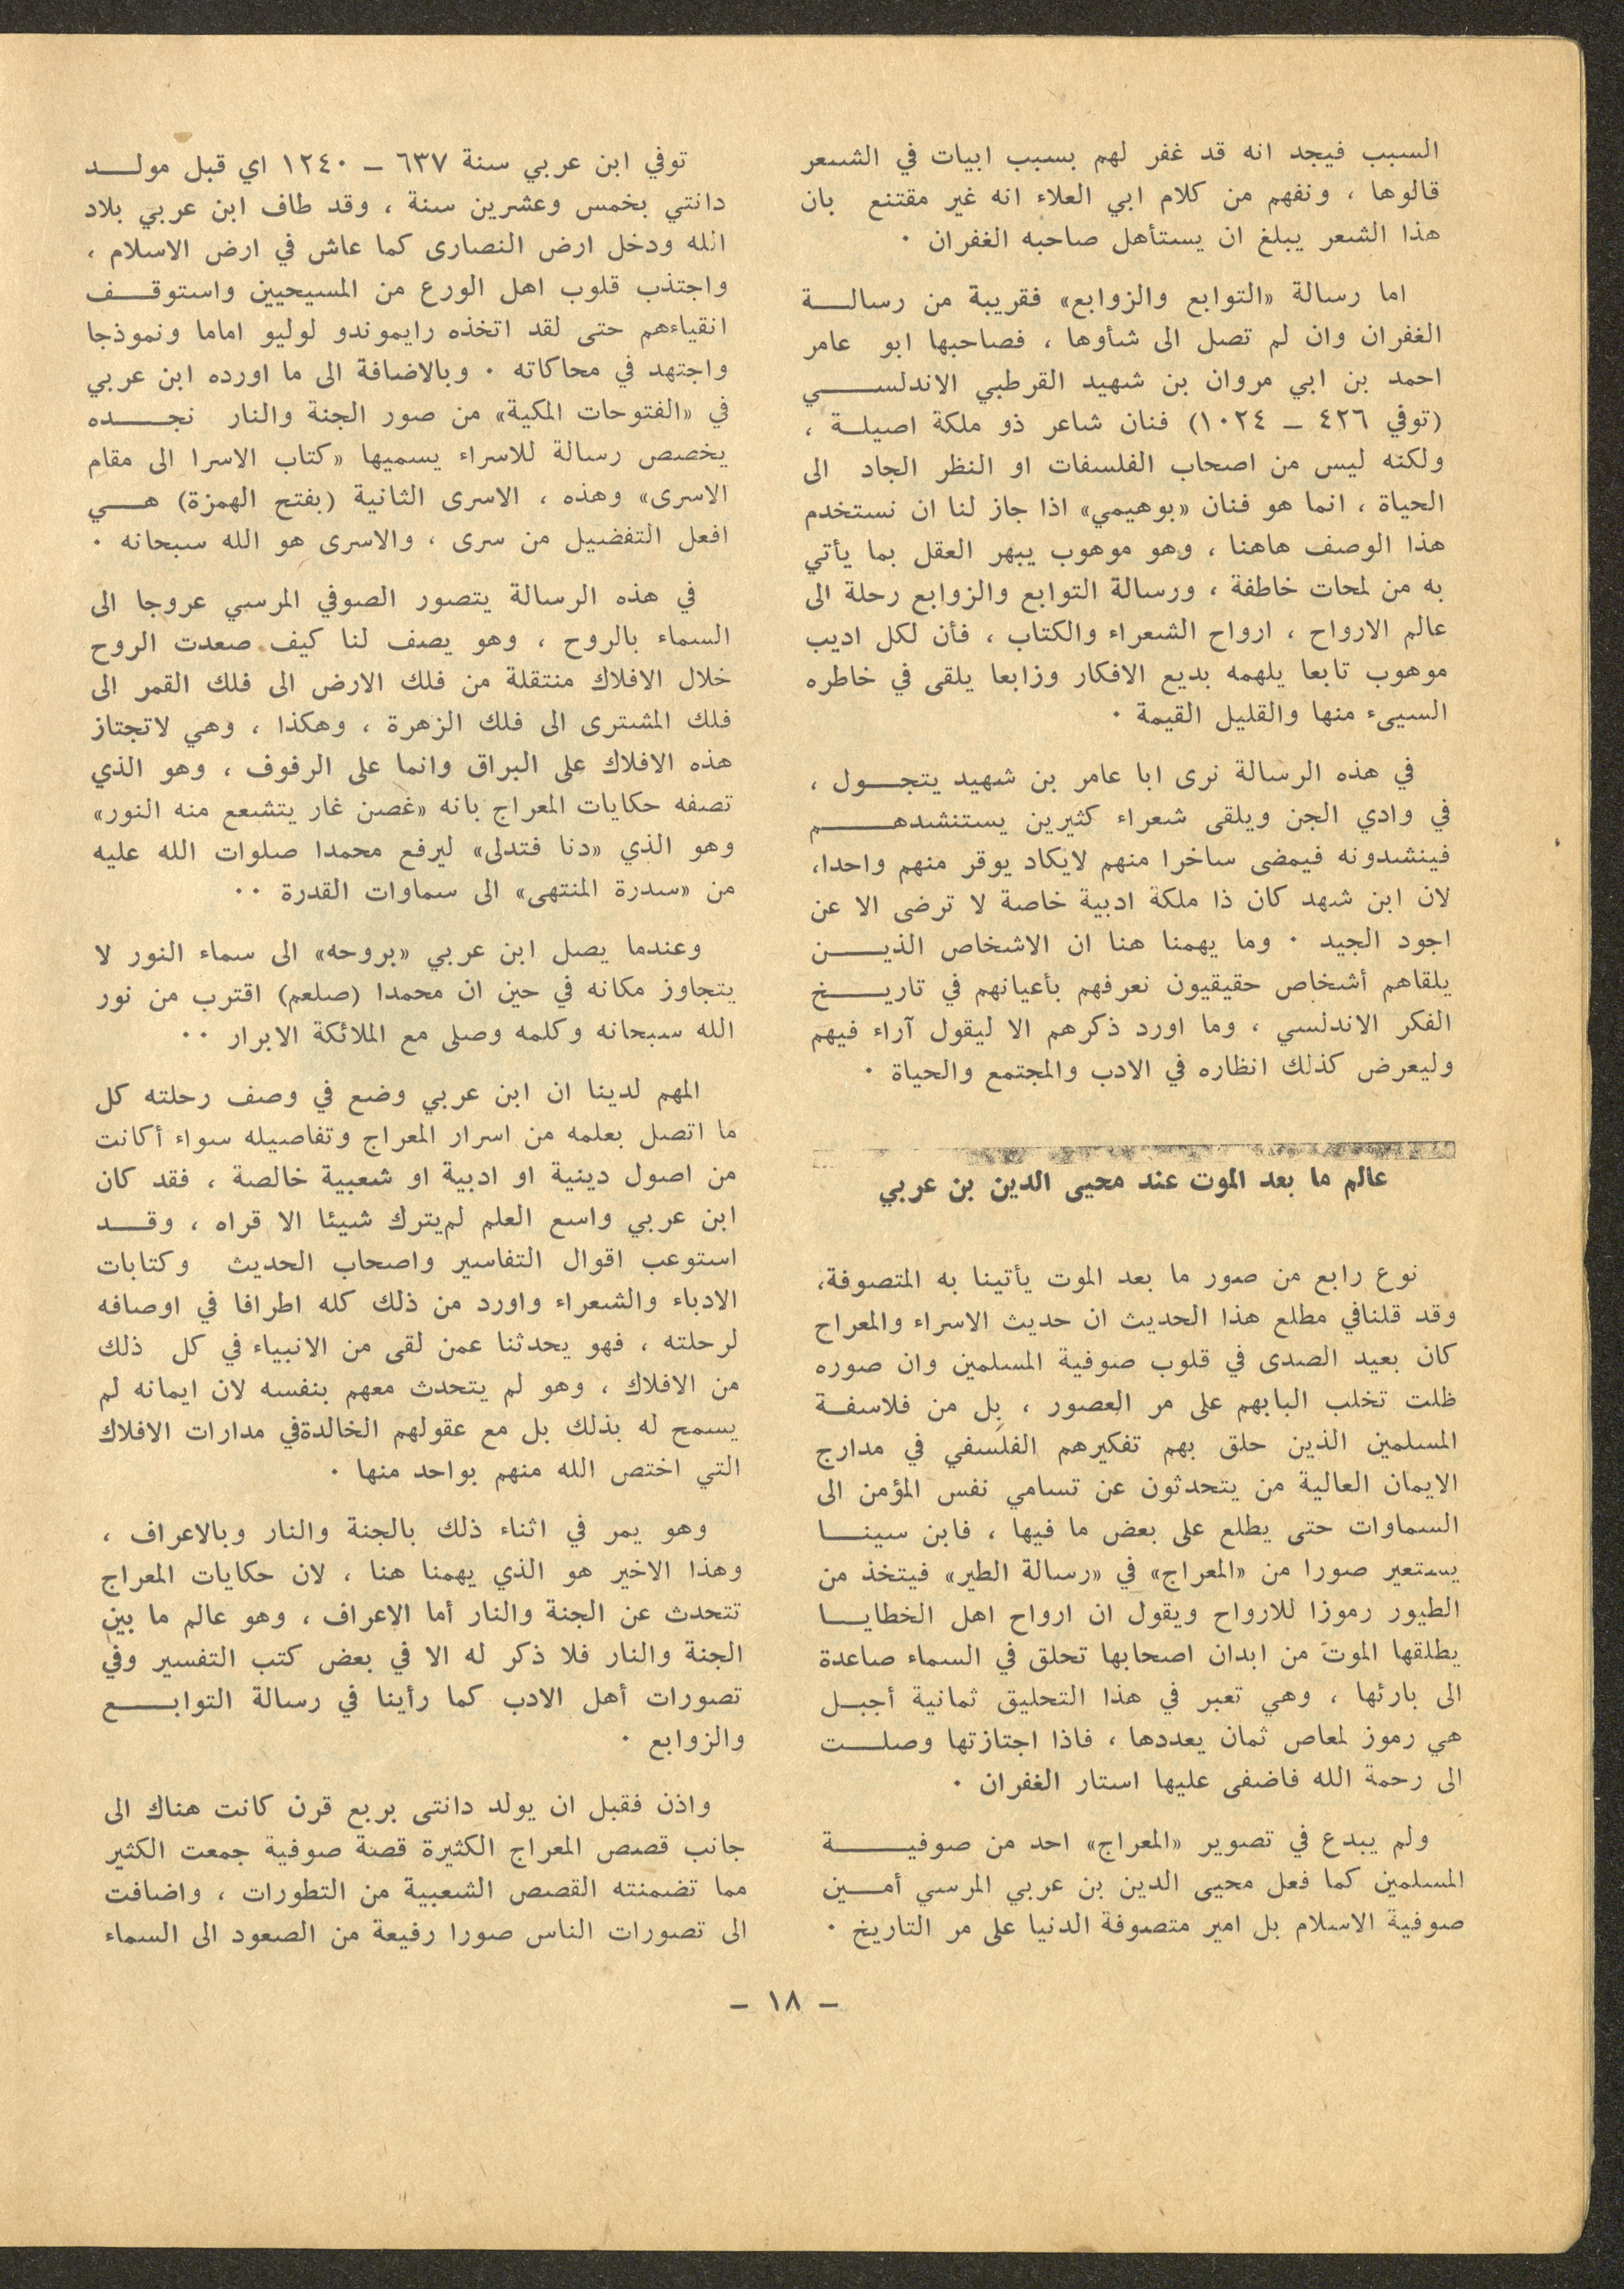 السبب فيجد انه قد غفر لهم بسبب ابيات في الشعر
قالوها ، ونفهم من كلام ابي العلاء انه غير مقتنع بان
هذا الشعر يبلغ ان يستأهل صاحبه الغفران ٠
اما رسالة «التوابع والزوابع» فقريبة من رسالة
الغفران وان لم تصل الى شأوها ، فصاحبها ابو عامر
احمد بن ابي مروان بن شهيد القرطبي الاندلسي
(توفي ٤٢٦ ــ ١٠٢٤) فنان شاعر ذو ملكة اصيلة ،
ولكنه ليس من اصحاب الفلسفات او النظر الجاد الى
الحياة ، انما هو فنان «بوهيمي» اذا جاز لنا ان نستخدم
هذا الوصف هاهنا ، وهو موهوب يبهر العقل بما يأتي
به من لمحات خاطفة ، ورسالة التوابع والزوابع رحلة الى
عالم الارواح ، ارواح الشعراء والكتاب ، فأن لكل اديب
موهوب تابعا يلهمه بديع الافكار وزابعا يلقى في خاطره
السيىء منها والقليل القيمة ٠
في هذه الرسالة نرى ابا عامر بن شهيد يتجول ،
في وادي الجن ويلقى شعراء كثيرين يستنشدهم
فينشدونه فيمضى ساخرا منهم لايكاد يوقر منهم واحدا،
لان ابن شهد كان ذا ملكة ادبية خاصة لا ترضى الا عن
اجود الجيد ٠ وما يهمنا هنا ان الاشخاص الذين
يلقاهم أشخاص حقيقيون نعرفهم بأعيانهم في تاريخ
الفكر الاندلسي ، وما اورد ذكرهم الا ليقول آراء فيهم
وليعرض كذلك انظاره في الادب والمجتمع والحياة ٠
عالم ما بعد الموت عند محيى الدين بن عربي
نوع رابع من صور ما بعد الموت يأتينا به المتصوفة،
وقد قلنافي مطلع هذا الحديث ان حديث الاسراء والمعراج
كان بعيد الصدى في قلوب صوفية المسلمين وان صوره
ظلت تخلب البابهم على مر العصور ، بل من فلاسفة
المسلمين الذين حلق بهم تفكيرهم الفلسفي في مدارج
الايمان العالية من يتحدثون عن تسامي نفس المؤمن الى
السماوات حتى يطلع على بعض ما فيها ، فابن سينا
يستعير صورا من «المعراج» في «رسالة الطير» فيتخذ من
الطيور رموزا للارواح ويقول ان ارواح اهل الخطايا
يطلقها الموت من ابدان اصحابها تحلق في السماء صاعدة
الى بارئها ، وهي تعبر في هذا التحليق ثمانية أجبل
هي رموز لمعاص ثمان يعددها ، فاذا اجتازتها وصلت
الى رحمة الله فاضفى عليها استار الغفران ٠
ولم يبدع في تصوير «المعراج» احد من صوفية
المسلمين كما فعل محيى الدين بن عربي المرسي أمين
صوفية الاسلام بل امير متصوفة الدنيا على مر التاريخ ٠
توفي ابن عربي سنة ٦٣٧ ــ ١٢٤٠ اي قبل مولد
دانتي بخمس وعشرين سنة ، وقد طاف ابن عربي بلاد
الله ودخل ارض النصارى كما عاش في ارض الاسلام ،
واجتذب قلوب اهل الورع من المسيحيين واستوقف
انقياءهم حتى لقد اتخذه رايموندو لوليو اماما ونموذجا
واجتهد في محاكاته ٠ وبالاضافة الى ما اورده ابن عربي
في «الفتوحات المكية» من صور الجنة والنار نجده
يخصص رسالة للاسراء يسميها «كتاب الاسرا الى مقام
الاسرى» وهذه ، الاسرى الثانية (بفتح الهمزة) هي
افعل التفضيل من سرى ، والاسرى هو الله سبحانه ٠
في هذه الرسالة يتصور الصوفي المرسي عروجا الى
السماء بالروح ، وهو يصف لنا كيف صعدت الروح
خلال الافلاك منتقلة من فلك الارض الى فلك القمر الى
فلك المشترى الى فلك الزهرة ، وهكذا ، وهي لاتجتاز
هذه الافلاك على البراق وانما على الرفوف ، وهو الذي
تصفه حكايات المعراج بانه «غصن غار يتشعع منه النور»
وهو الذي «دنا فتدلى» ليرفع محمدا صلوات الله عليه
من «سدرة المنتهى» الى سماوات القدرة ٠٠
وعندما يصل ابن عربي «بروحه» الى سماء النور لا
يتجاوز مكانه في حين ان محمدا (صلعم) اقترب من نور
الله سبحانه وكلمه وصلى مع الملائكة الابرار ٠٠
المهم لدينا ان ابن عربي وضع في وصف رحلته كل
ما اتصل بعلمه من اسرار المعراج وتفاصيله سواء أكانت
من اصول دينية او ادبية او شعبية خالصة ، فقد كان
ابن عربي واسع العلم لم‌يترك شيئا الا قراه ، وقد
استوعب اقوال التفاسير واصحاب الحديث وكتابات
الادباء والشعراء واورد من ذلك كله اطرافا في اوصافه
لرحلته ، فهو يحدثنا عمن لقى من الانبياء في كل ذلك
من الافلاك ، وهو لم يتحدث معهم بنفسه لان ايمانه لم
يسمح له بذلك بل مع عقولهم الخالدةفي مدارات الافلاك
التي اختص الله منهم بواحد منها ٠
وهو يمر في اثناء ذلك بالجنة والنار وبالاعراف ،
وهذا الاخير هو الذي يهمنا هنا ، لان حكايات المعراج
تتحدث عن الجنة والنار أما الاعراف ، وهو عالم ما بين
الجنة والنار فلا ذكر له الا في بعض كتب التفسير وفي
تصورات أهل الادب كما رأينا في رسالة التوابع
والزوابع ٠
واذن فقبل ان يولد دانتى بربع قرن كانت هناك الى
جانب قصص المعراج الكثيرة قصة صوفية جمعت الكثير
مما تضمنته القصص الشعبية من التطورات ، واضافت
الى تصورات الناس صورا رفيعة من الصعود الى السماء
– ١٨ –